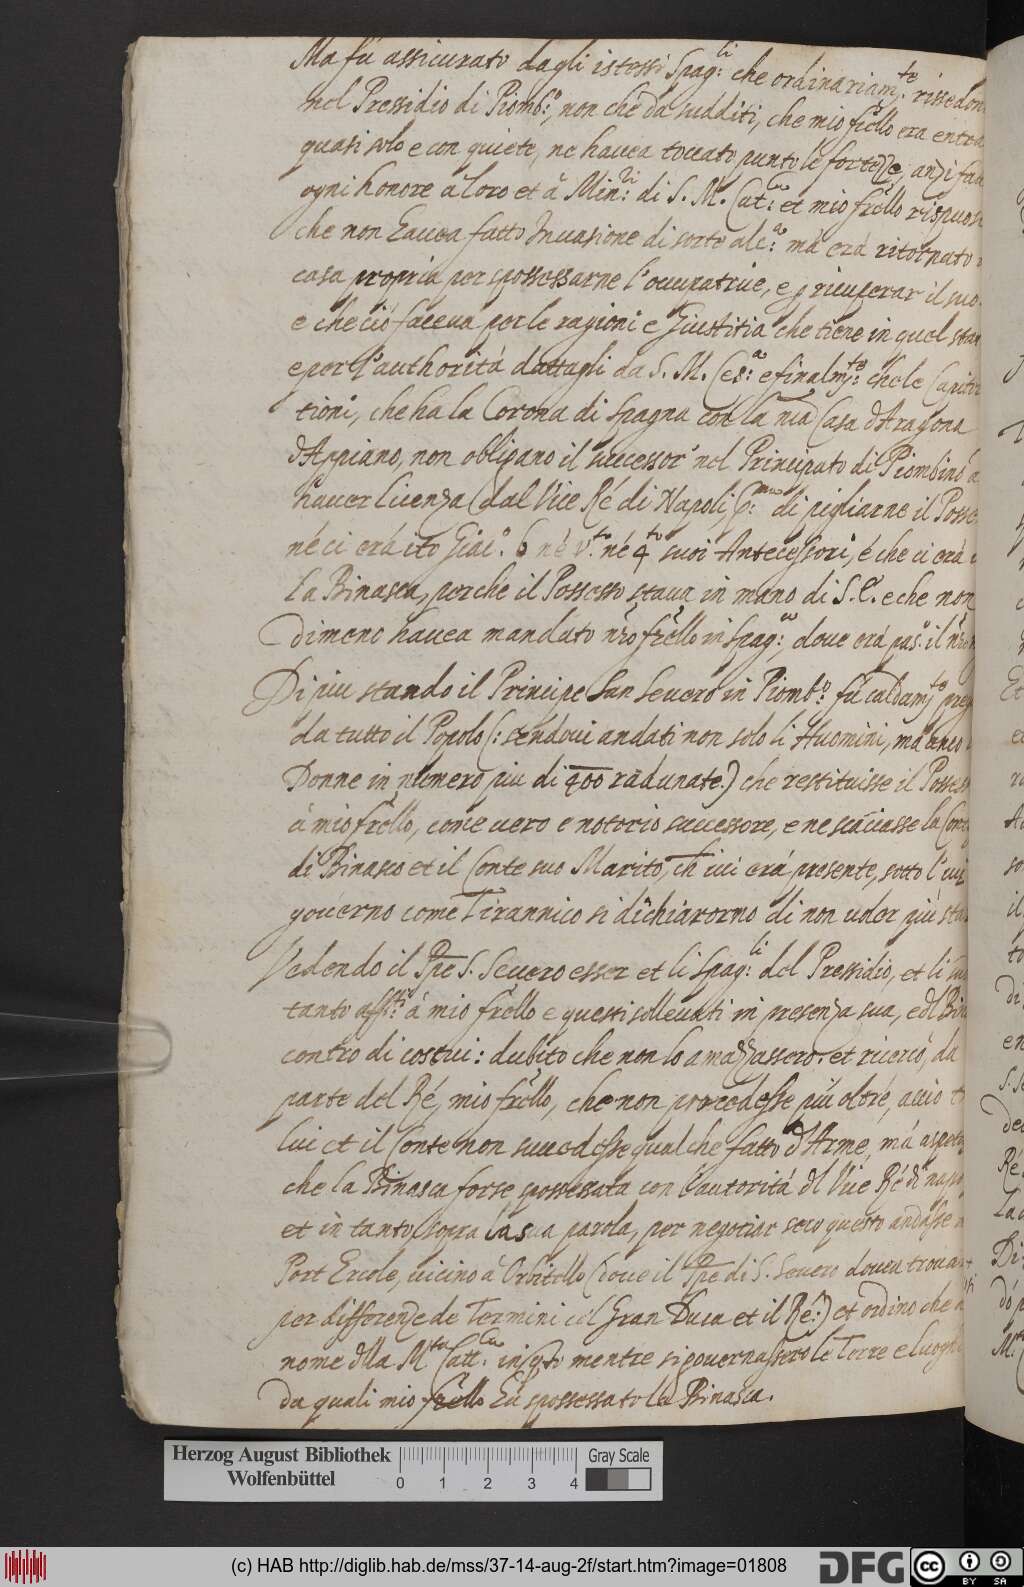 Ma fù assicurato dagli istessi Spag:li che ordinariam:te rissedon
nel Pressidio di Piomb:o, non che da sudditi, che mio frello era entra
quasi solo e con quiete, ne havea toccato punto le forteze, anzi fa
ogni honore à loro et à Min:ri di S. M. Cat:ca et mio frello rispuos
che non havea fatto Invasione di sorte alc:a mà erà ritornato
casa propria per spossessarne l'occupatrice, e p ricuperar il suo
e che ciò faceva per le ragioni e Giustitia che tiene in quel stat
e per l'authorità dattagli da S. M. Ces:a e finalm:te che le Capito
tioni, che ha la Corona di Spagna con la nra Casa d'Aragona
d'Appiano, non obligano il successor' nel Principato di Piombino a
haver licenza (dal Vice Ré di Napoli di pigliarne il Posse
né ci erà ito Giac:o 6 né V:to né 4:to suoi Antecessori, é che ci erà
la Binasca, perche il Possesso stava in mano di S. E. e che non
dimeno havea mandato nro frello in Spag:a, dove erà pas:o il nro
Di piu stando il Principe San Severo in Piomb:o fù caldam:te preg
da tutto il Popolo (: sendovi andati non solo li Huomini, ma anco
Donne in numero piu di 400 radunate.) che restituisse il Posses
à mio frello, come vero e notorio successore, e ne scacciasse la Cont
di Binasco et il Conte suo Marito, ch ivi erà presente, sotto l'cui
governo come Tirannico si dichiarorno di non voler più sta
Vedendo il Ppe S. Severo esser et li Spag:li del Pressidio, et li
tanto aff:ti à mio frello e questi sollevati in presenza sua, e dl Bin
contro di costui: dubito che non lo amazzassero. et ricercò, da
parte del Ré, mio frello, che non procedesse più oltré, acciò t
lui et il Conte non succedesse qualche fatto d'Arme, mà aspet
che la Binasca forse spossessata con l'autorità dl Vice Ré di nap
et in tanto sopra la sua parola, per negotiar seco questo andasse
Port Ercole, vicino à Orbitello (dove il Ppe di S. Severo dovea trovar
per differenze de Termini col Gran Duca et il Ré:) et ordino che
nome dlla M:tà Catt:ca in qto mentre si governassero le Torre e luoghi
da quali mio frello ha spossessato la Binasca.
Herzog August Bibliothek
Wolfenbüttel
0 1 2 3 4
Gray Scale
(c) HAB http://diglib.hab.de/mss/37-14-aug-2f/start.htm?image=01808
DFG
cc BY SA